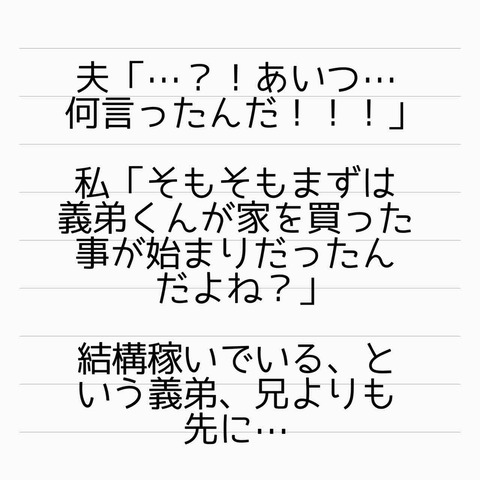 夫「…？！あいつ…
何言ったんだ！！！」
私「そもそもまずは
義弟くんが家を買った
事が始まりだったん
だよね？」
結構稼いでいる、と
いう義弟、兄よりも
先に…